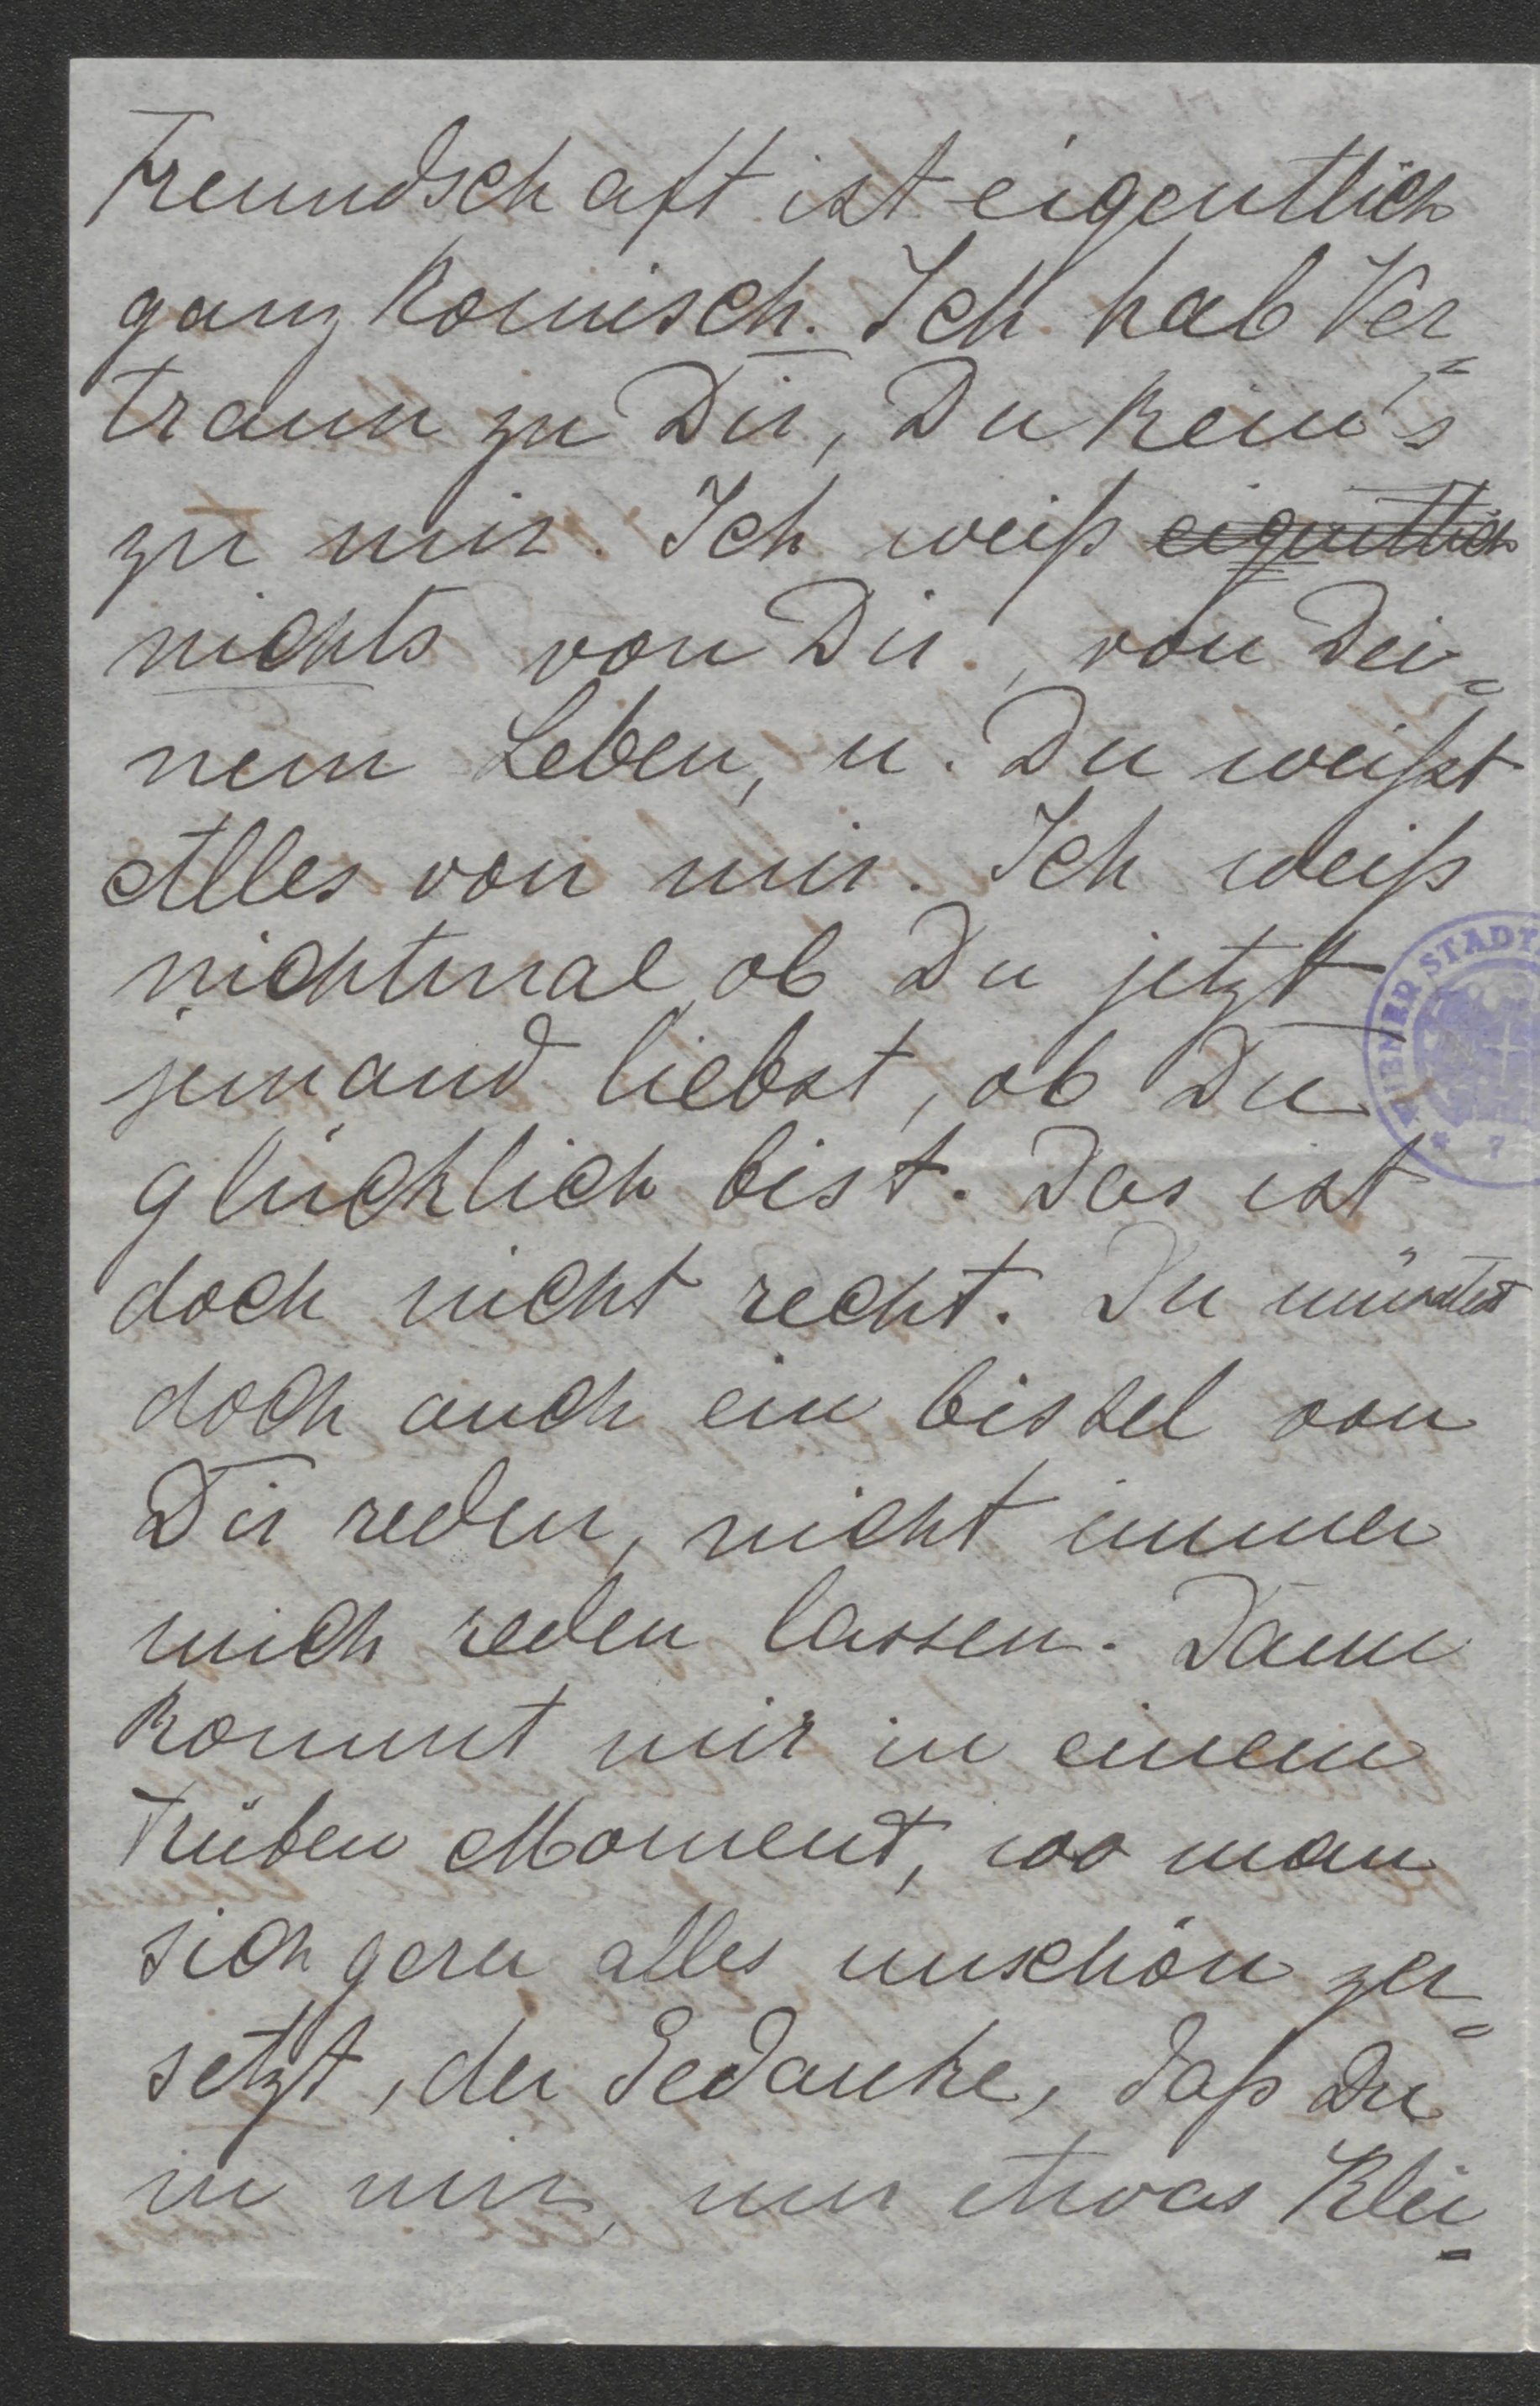 Freundschaft ist eigentlich
ganz komisch. Ich hab Ver=
traun zu Dir, Du kein's
zu mir. Ich weiß eigentlich
nichts von Dir, von Dei=
nem Leben, u. Du weißt
Alles von mir. Ich weiß
nichtmal ob Du jetzt
jemand liebst, ob Du
glücklich bist. Das ist
doch nicht recht. Du müsstest
doch auch ein bissel von
Dir reden, nicht immer
mich reden lassen. Dann
kommt mir in einem
trüben Moment, wo man
sich gern alles unschön zer=
setzt, der Gedanke, daß Du
in mir, nur etwas Klei=
WIENER STADT
7